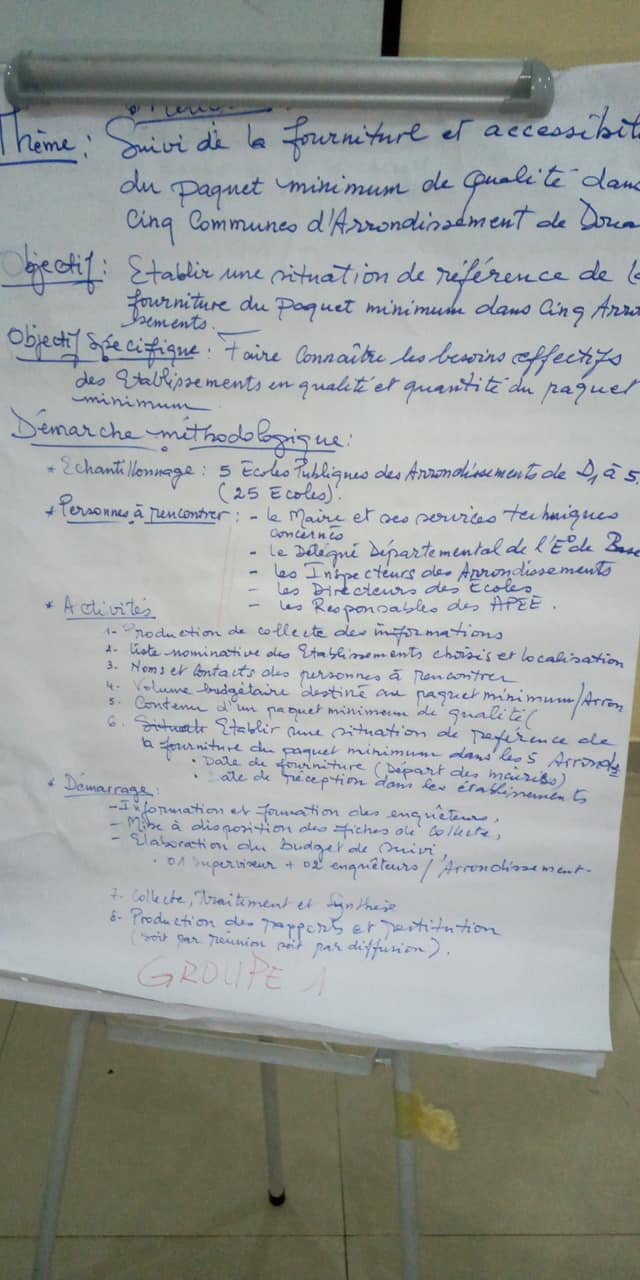 Thème : Suivi de la fourniture et accessibit
du paquet minimum de qualité dans
Cinq Communes d'Arrondissement de Doua
Objectif : Etablir une situation de référence de la
fourniture du paquet minimum dans Cinq Arro
sements.
Objectif Spécifique : Faire Connaître les besoins effectifs
des Etablissements en qualité et quantité du paquet
minimum
Démarche méthodologique :
* Echantillonnage : 5 Ecoles Publiques des Arrondissements de D1 à 5.
(25 Ecoles).
* Personnes à rencontrer : - le Maire et ses services techniques
concernés
- Le Délégué Départemental de l'E° de Base
- les Inspecteurs des Arrondissements
- les Directeurs des Ecoles
- les Responsables des APEE.
* Activités
1- Production de collecte des informations
2- Liste nominative des Etablissements choisis et localisation
3- Noms et Contacts des personnes à rencontrer
4- Volume budgétaire destiné au paquet minimum/Arron
5- Contenu d'un paquet minimum de qualité (
6- Etablir une situation de référence de
la fourniture du paquet minimum dans les 5 Arronds
• Date de fourniture (Départ des mairies)
• Date de réception dans les établissements
* Démarrage :
- Information et formation des enquêteurs,
- Mise à disposition des fiches de collecte,
- Elaboration du budget de suivi,
• 01 Superviseur + 02 enquêteurs / Arrondissement-
7- Collecte, traitement et Synthèse
8- Production des rapports et restitution
(soit par réunion soit par diffusion).
GROUPE 1